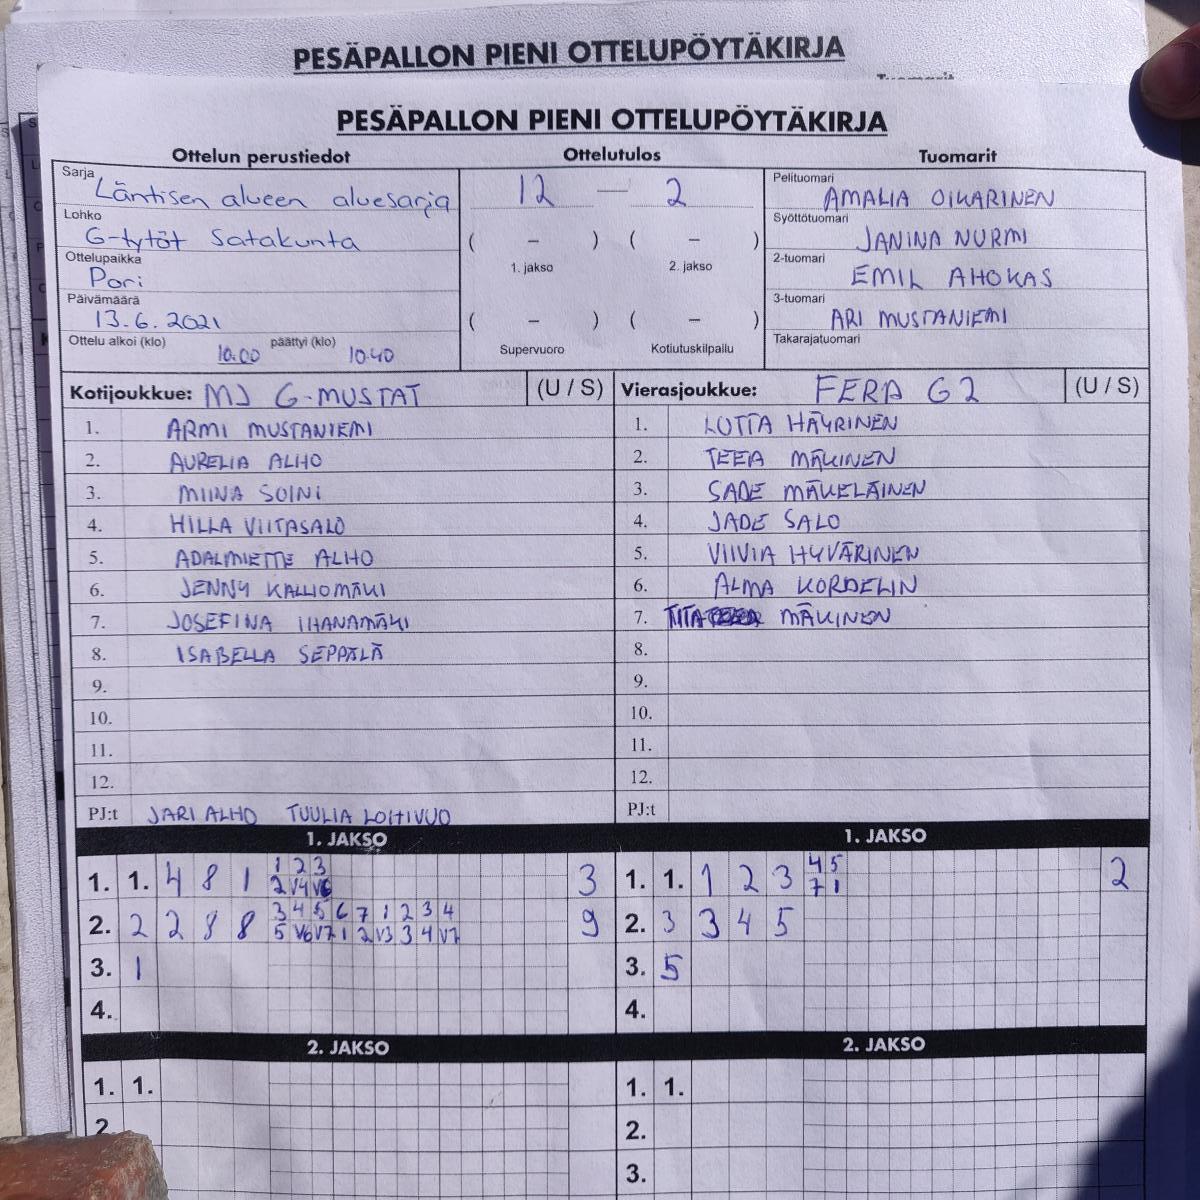 PESÄPALLON PIENI OTTELUPÖYTÄKIRJA
PESÄPALLON PIENI OTTELUPÖYTÄKIRJA
Ottelun perustiedot
Sarja Läntisen alueen aluesarja
Lohko G-tytöt Satakunta
Ottelupaikka Pori
Päivämäärä 13.6.2021
Ottelu alkoi (klo) 10.00 päättyi (klo) 10.40
Ottelutulos
12 — 2
( – ) ( – )
1. jakso 2. jakso
( – ) ( – )
Supervuoro Kotiutuskilpailu
Tuomarit
Pelituomari AMALIA OIKARINEN
Syöttötuomari JANINA NURMI
2-tuomari EMIL AHOKAS
3-tuomari ARI MUSTANIEMI
Takarajatuomari:
Kotijoukkue: MJ G-MUSTAT (U / S)
1. ARMI MUSTANIEMI
2. AURELIA ALHO
3. MIINA SOINI
4. HILLA VIITASALO
5. ADALMIETTE ALHO
6. JENNY KALLIOMÄKI
7. JOSEFINA IHANAMÄKI
8. ISABELLA SEPPÄLÄ
9.
10.
11.
12.
PJ:t JARI ALHO TUULIA
Vierasjoukkue: FERA G2 (U / S)
1. LOTTA HÄYRINEN
2. TEEA MÄKINEN
3. SADE MÄKELÄINEN
4. JADE SALO
5. VIIVIA HYVÄRINEN
6. ALMA KORDELIN
7. TITA MÄKINEN
8.
9.
10.
11.
12.
PJ:t
1. JAKSO
1. 1. 4 8 1 1 2 3 3
2 V4 V6
2. 2 2 8 8 3 4 5 6 7 1 2 3 4 9
5 V6 V7 1 2 V3 3 4 V7
3. 1
4.
1. JAKSO
1. 1. 1 2 3 4 5 2
7 1
2. 3 3 4 5
3. 5
4.
2. JAKSO
1. 1.
2.
2. JAKSO
1. 1.
2.
3.